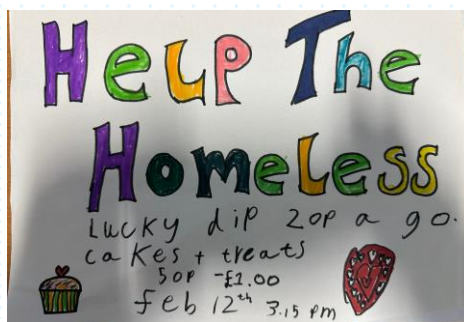 Help The
Homeless
Lucky dip 20p a go.
cakes + treats
50p - £1.00
feb 12th 3.15 pm